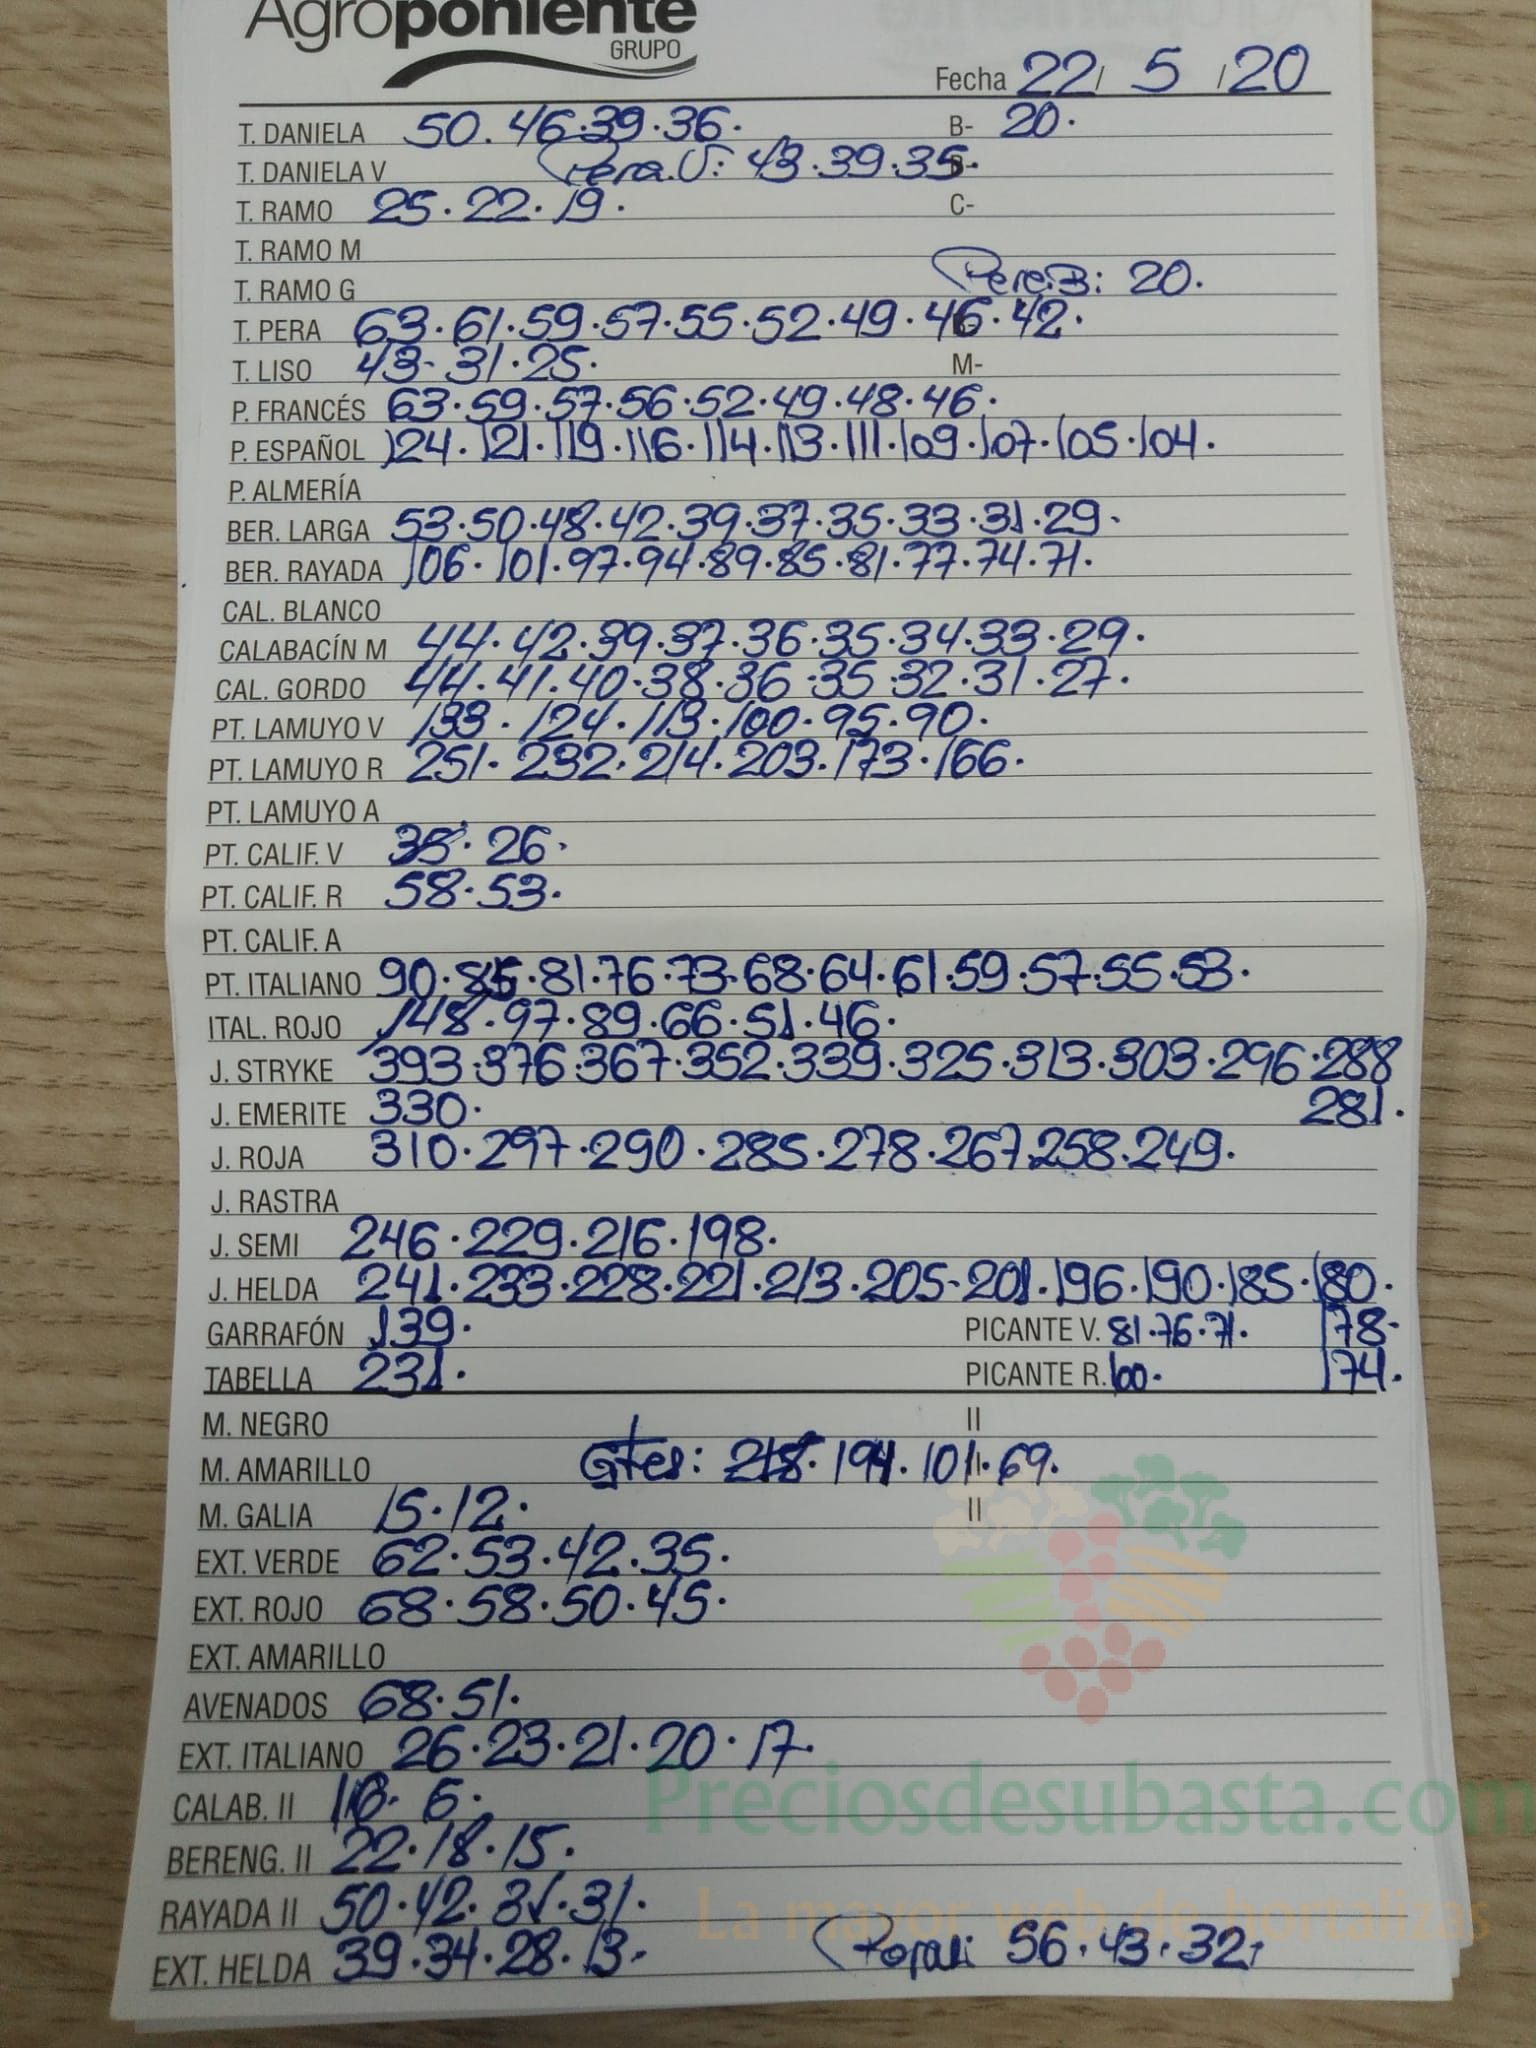 Agroponiente
GRUPO
Fecha 22/ 5 /20
T. DANIELA 50. 46.39.36. B- 20.
T. DANIELA V Pera.V: 43.39.35.
T. RAMO 25.22.19. C-
T. RAMO M
T. RAMO G Pera.B: 20.
T. PERA 63.61.59.57.55.52.49.46.42.
T. LISO 43-31.25. M-
P. FRANCÉS 63.59.57.56.52.49.48.46.
P. ESPAÑOL 124.121.119.116.114.113.111.109.107.105.104.
P. ALMERÍA
BER. LARGA 53.50.48.42.39.37.35.33.31.29.
BER. RAYADA 106.101.97.94.89.85.81.77.74.71.
CAL. BLANCO
CALABACÍN M 44.42.39.37.36.35.34.33.29.
CAL. GORDO 44.41.40.38.36.35.32.31.27.
PT. LAMUYO V 133.124.113.100.95.90.
PT. LAMUYO R 251.232.214.203.173.166.
PT. LAMUYO A
PT. CALIF. V 35.26.
PT. CALIF. R 58.53.
PT. CALIF. A
PT. ITALIANO 90.85.81.76.73.68.64.61.59.57.55.53.
ITAL. ROJO 148.97.89.66.51.46.
J. STRYKE 393.376.367.352.339.325.313.303.296.288
J. EMERITE 330. 281.
J. ROJA 310.297.290.285.278.267.258.249.
J. RASTRA
J. SEMI 246.229.216.198.
J. HELDA 241.233.228.221.213.205-201.196.190.185.180.
GARRAFÓN 139. PICANTE V. 81.76.71. 178-
TABELLA 231. PICANTE R. 100. 174.
M. NEGRO II
M. AMARILLO Gtes: 218.194.101.69.
M. GALIA 15.12. II
EXT. VERDE 62.53.42.35.
EXT. ROJO 68.58.50.45.
EXT. AMARILLO
AVENADOS 68.51.
EXT. ITALIANO 26.23.21.20.17.
Preciosdesubasta.com
CALAB. II 6.
BERENG. II 22.18.15.
RAYADA II 50.42. 31.
La mayor web de hortalizas
EXT. HELDA 39.34.28.13. 56.43.32.